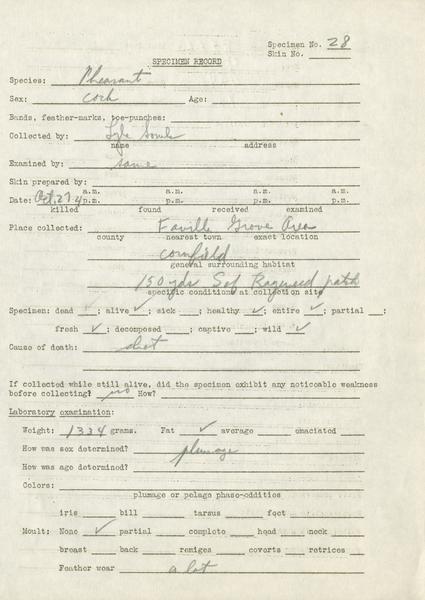 Specimen No. 28
Skin No.
SPECIMEN RECORD
Species: Pheasant
Sex: cock Age:
Bands, feather-marks, toe-punches:
Collected by: Lyle Sowls
name address
Examined by: same
Skin prepared by:
a.m. a.m. a.m. a.m.
Date: Oct. 27 p.m. p.m. p.m. p.m.
killed found received examined
Place collected: Faville Grove Area
county nearest town exact location
cornfield
general surrounding habitat
150 yds S of Ragweed patch
specific conditions at collection site
Specimen: dead ; alive ✓; sick ; healthy ✓; entire ✓; partial ;
fresh ✓; decomposed ; captive ; wild ✓
Cause of death: shot
If collected while still alive, did the specimen exhibit any noticeable weakness
before collecting? no How?
Laboratory examination:
Weight: 1334 grams. Fat ✓ average emaciated
How was sex determined? plumage
How was age determined?
Colors:
plumage or pelage phase-oddities
iris bill tarsus feet
Moult: None ✓ partial complete head neck
breast back remiges coverts retrices
Feather wear a lot